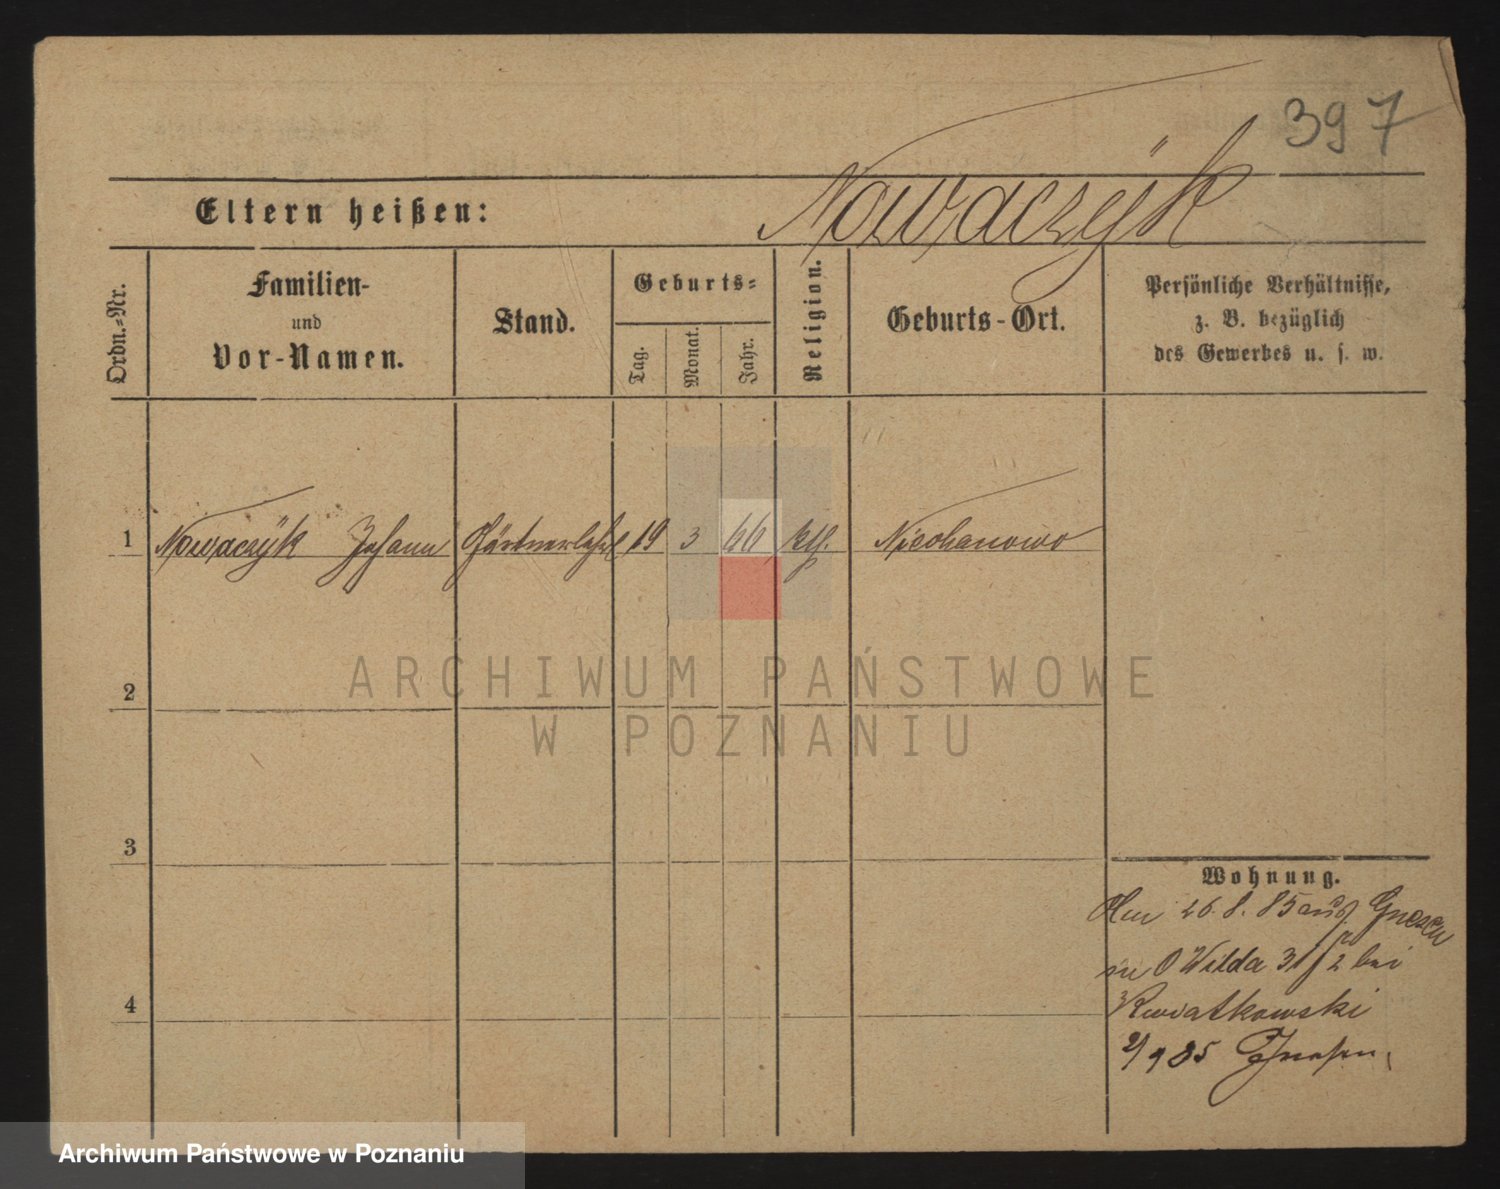 397
Eltern heißen: Nowaczÿk
Ordn.-Nr.
Familien-
und
Vor-Namen.
Stand.
Geburts-
Tag.
Monat.
Jahr.
Religion.
Geburts-Ort.
Persönliche Verhältnisse,
z. B. bezüglich
des Gewerbes u. s. w.
1 Nowaczÿk Johann Gärtnerlehrl 19 3 66 kth. Niechanowo
2
3
4
ARCHIWUM PAŃSTWOWE
W POZNANIU
Wohnung.
26.8.85 aus Gnesen
O Wilda 31/2 bei
Kwiatkowski
2/9 85 Gnesen
Archiwum Państwowe w Poznaniu